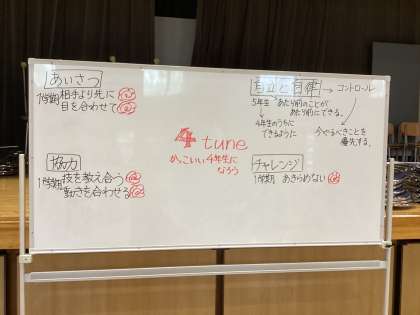 あいさつ
1学期 相手より先に
目を合わせて
自立と自律 → コントロール
5年生 "あたり前のことが
あたり前にできる。
4年生のうちに
できるように
今やるべきことを
優先する。
4 tune
めっこいい4年生に
なろう
協力
1学期 技を教え合う
動きを合わせる
チャレンジ
1学期 あきらめない